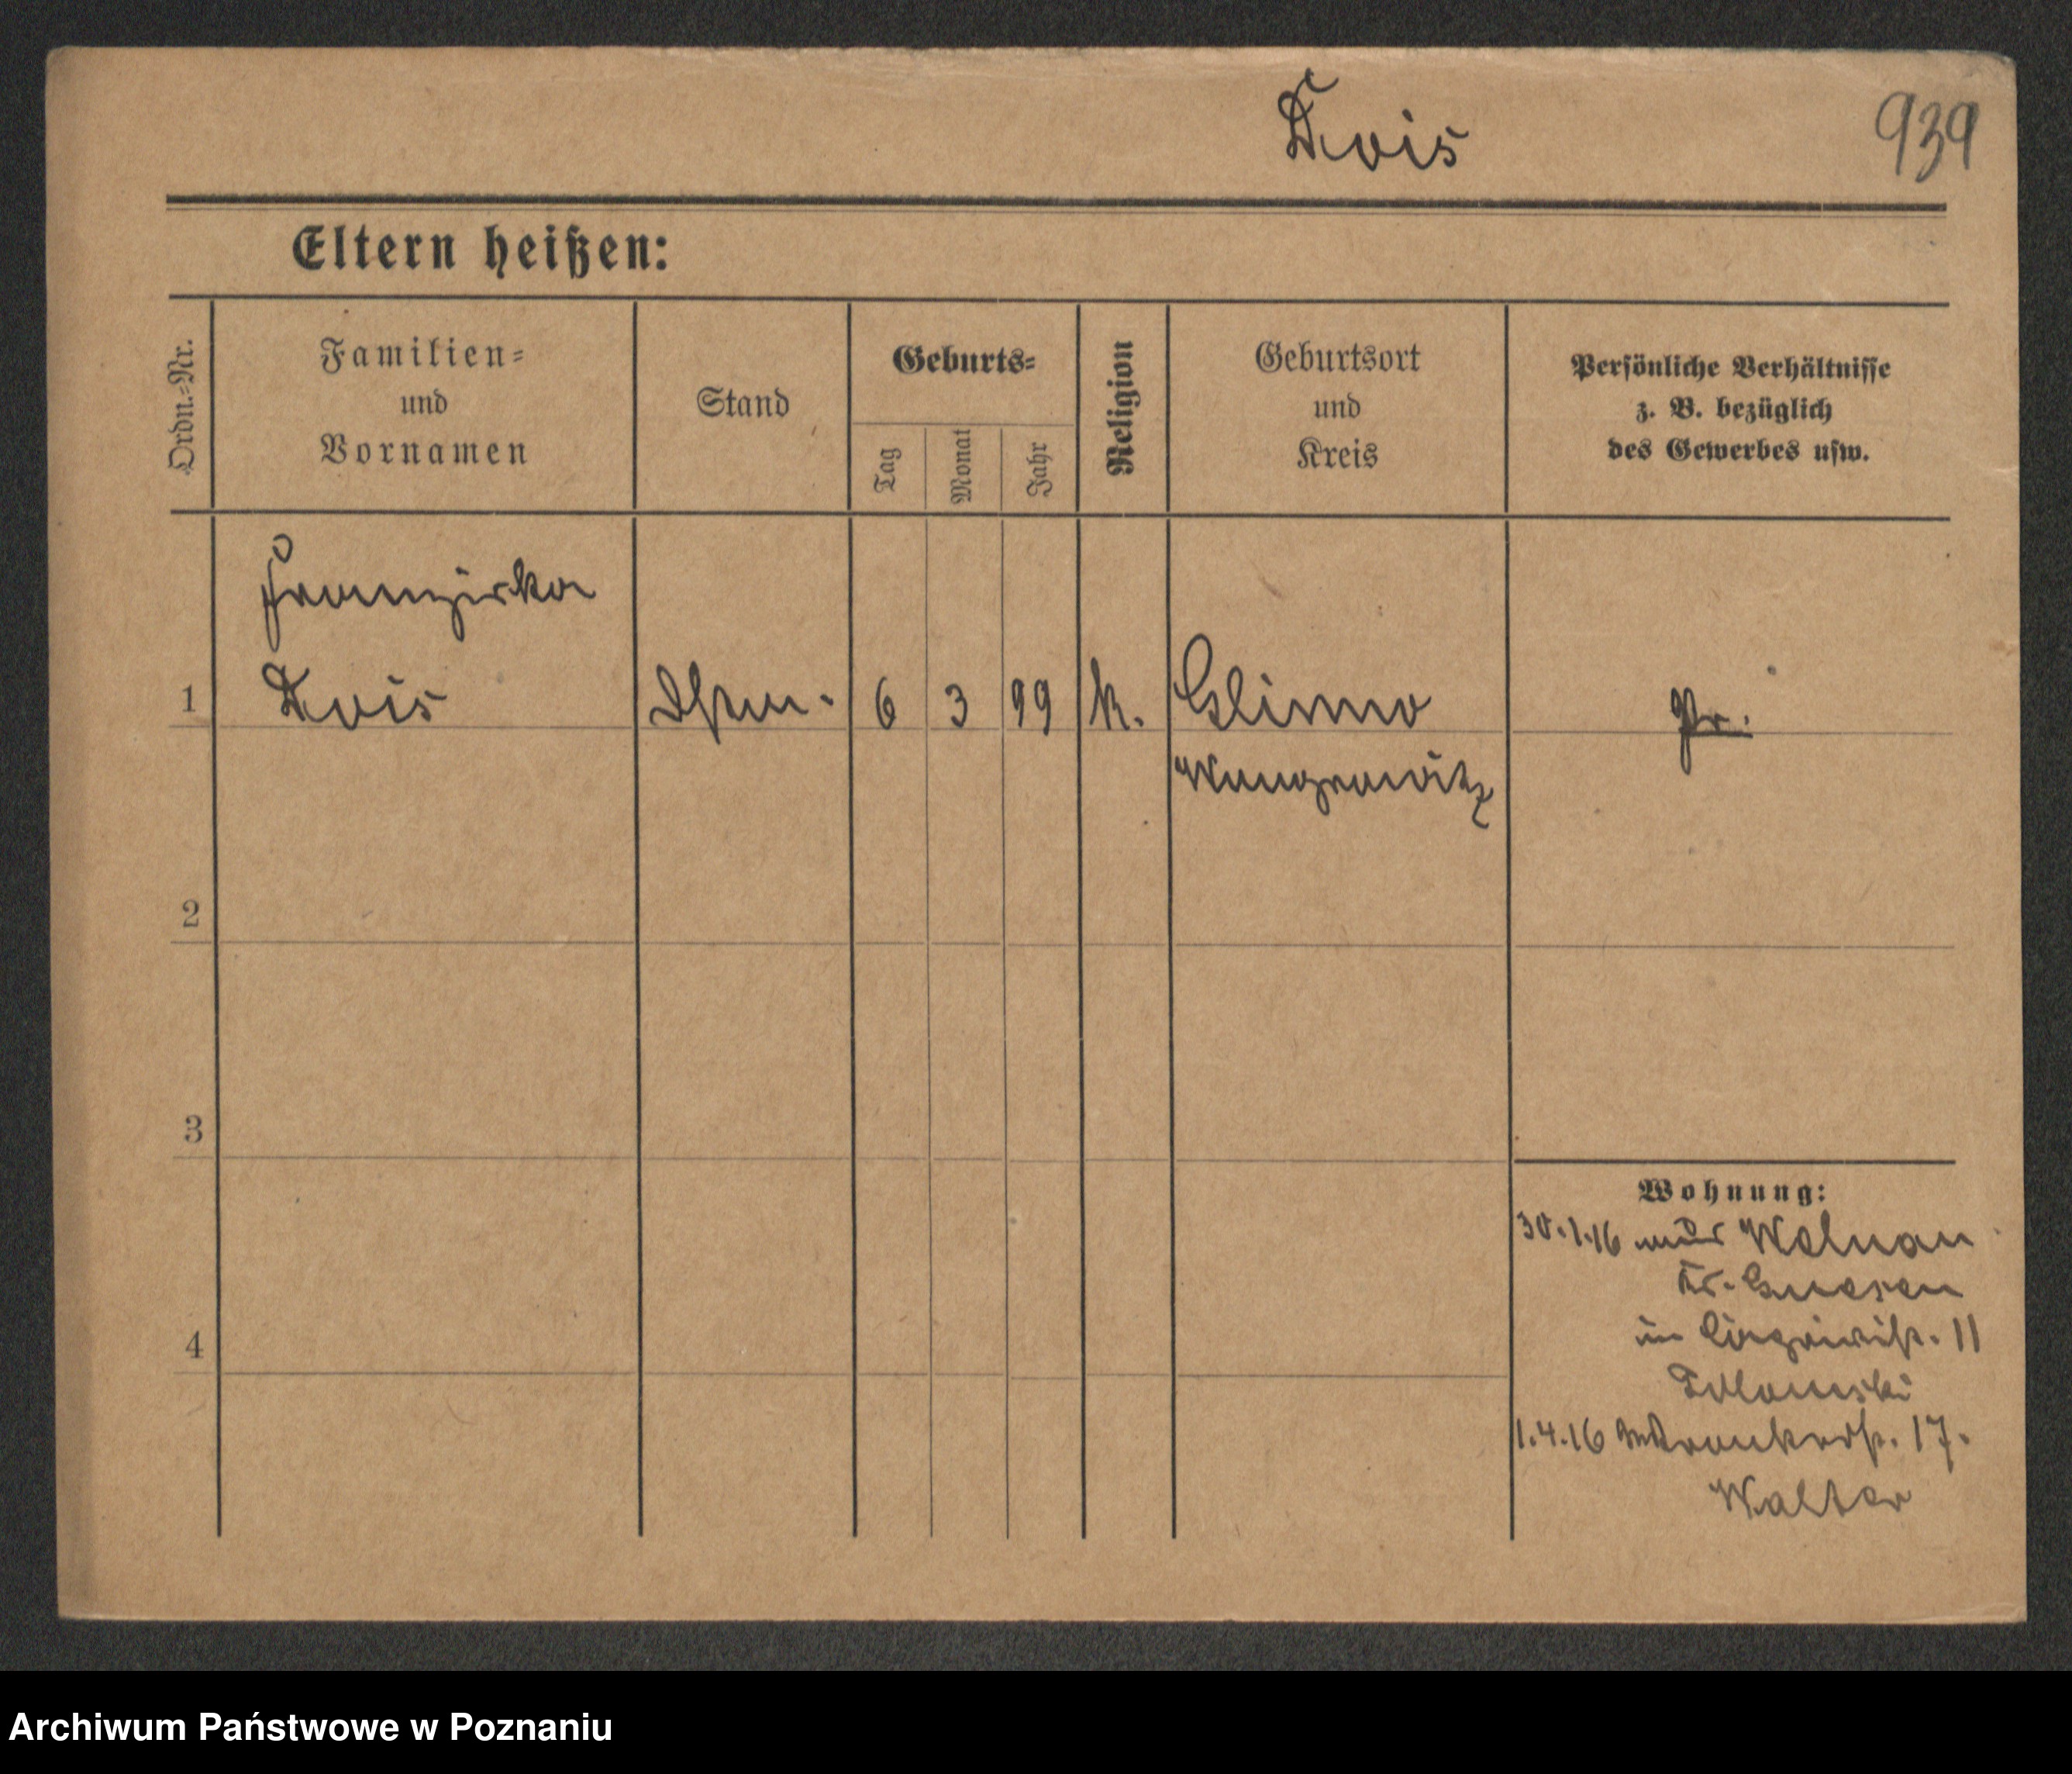 Kois
939
Eltern heißen:
Ordn.-Nr.
Familien-
und
Vornamen
Stand
Geburts-
Tag
Monat
Jahr
Religion
Geburtsort
und
Kreis
Persönliche Verhältnisse
z. B. bezüglich
des Gewerbes usw.
Franziska
1 Kois 6 3 99 k. Glinno Pr.
Wongrowitz
2
3
Wohnung:
30.1.16 Welnau
Kr. Gnesen
4
11
1.4.16 17.
Walter
Archiwum Państwowe w Poznaniu